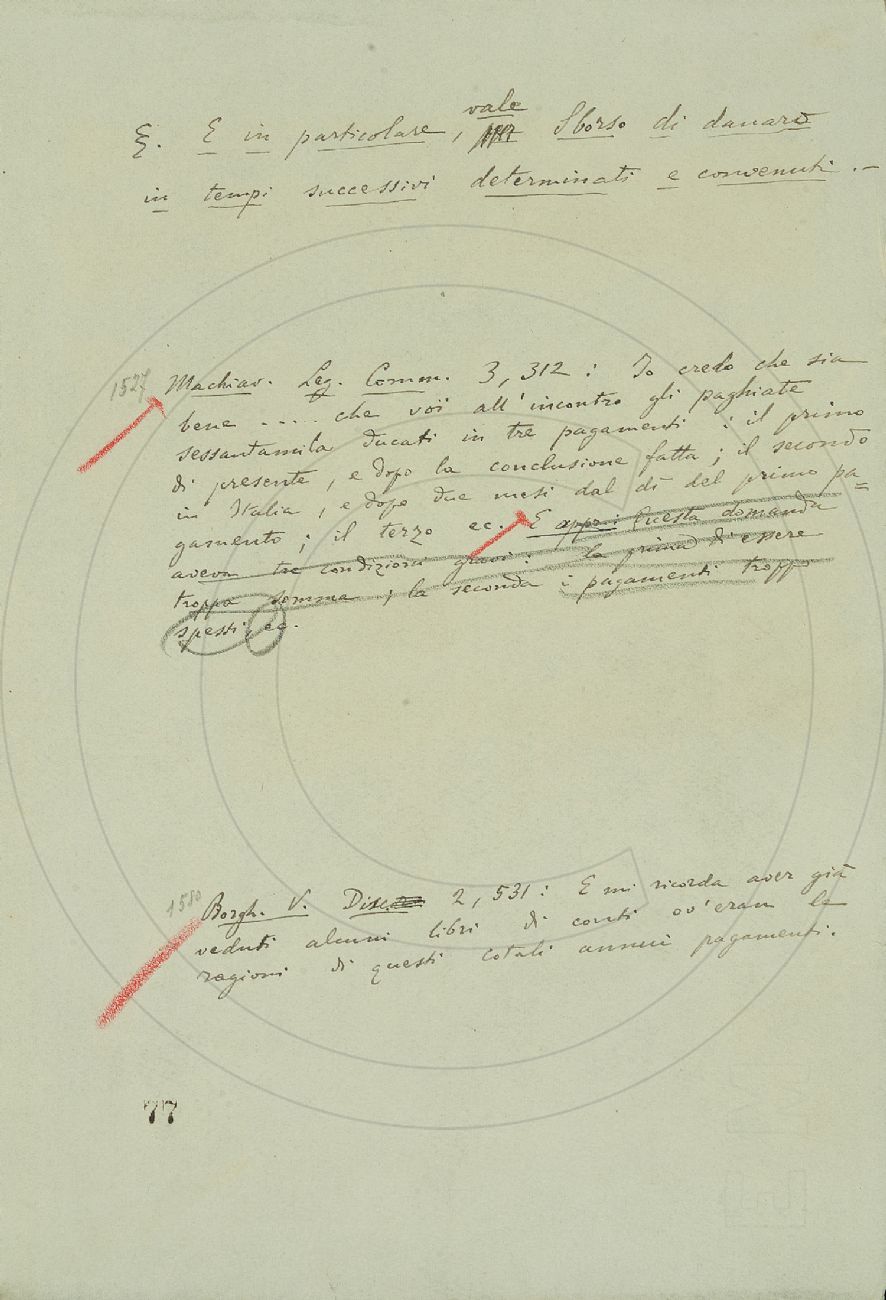 §. E in particolare, vale Sborso di danaro
in tempi successivi determinati e convenuti. –
1527
Machiav. Leg. Comm. 3, 312: Io credo che sia
bene .... che voi all'incontro gli paghiate
sessantamila ducati in tre pagamenti: il primo
di presente, e dopo la conclusione fatta; il secondo
in Italia, e dopo due mesi dal dì del primo pa=
gamento; il terzo ec. E appr.: Questa domanda
aveva tre condizioni gravi: la prima di essere
troppa somma; la seconda i pagamenti troppo
spessi, ec.
1580
Borgh. V. Disc. 2, 531: E mi ricorda aver già
veduti alcuni libri di conti ov'eran le
ragioni di questi cotali annui pagamenti.
77